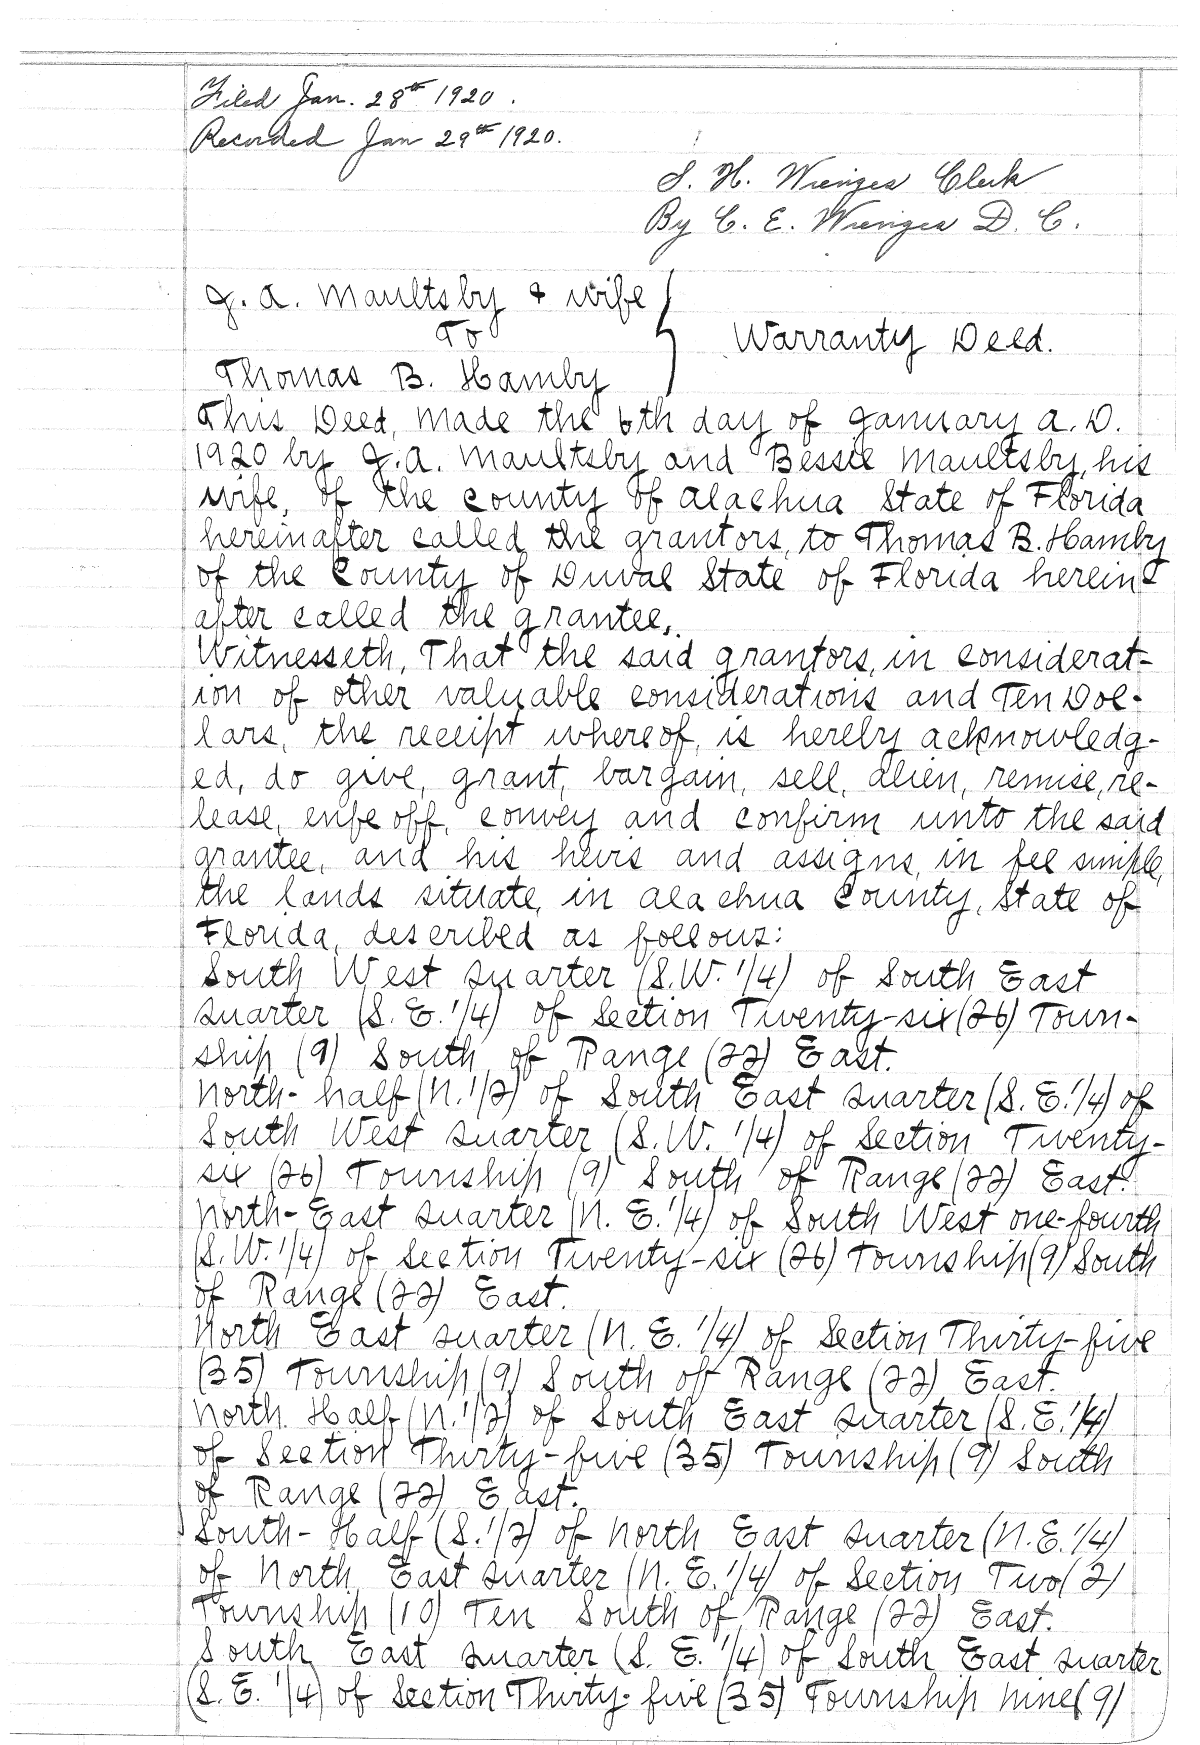 Filed Jan. 28th 1920.
Recorded Jan 29th 1920.
S. H. Wienges Clerk
By C. E. Wienges D. C.
J. A. Maultsby & wife
To
Warranty Deed.
Thomas B. Hamby
This Deed, Made the 6th day of January A. D.
1920 by J. A. Maultsby and Bessie Maultsby, his
wife, of the County of Alachua State of Florida
hereinafter called the grantors, to Thomas B. Hamby
of the County of Duval State of Florida herein-
after called the grantee,
Witnesseth, That the said grantors, in considerat-
ion of other valuable considerations and Ten Dol-
lars, the receipt whereof, is hereby acknowledg-
ed, do give, grant, bargain, sell, alien, remise, re-
lease, enfeoff, convey and confirm unto the said
grantee, and his heirs and assigns, in fee simple,
the lands situate, in Alachua County, State of
Florida, described as follows:
South West quarter (S.W. 1/4) of South East
quarter (S. E. 1/4) of Section Twenty-six (26) Town-
ship (9) South of Range (22) East.
North-half (N. 1/2) of South East quarter (S. E. 1/4) of
South West quarter (S. W. 1/4) of Section Twenty-
six (26) Township (9) South of Range (22) East.
North-East quarter (N. E. 1/4) of South West one-fourth
(S. W. 1/4) of Section Twenty-six (26) Township (9) South
of Range (22) East.
North East quarter (N. E. 1/4) of Section Thirty-five
(35) Township (9) South of Range (22) East.
North Half (N. 1/2) of South East quarter (S. E. 1/4)
of Section Thirty-five (35) Township (9) South
of Range (22) East.
South-Half (S. 1/2) of North East quarter (N. E. 1/4)
of North East quarter (N. E. 1/4) of Section Two (2)
Township (10) Ten South of Range (22) East.
South East quarter (S. E. 1/4) of South East quarter
(S. E. 1/4) of Section Thirty-five (35) Township nine (9)